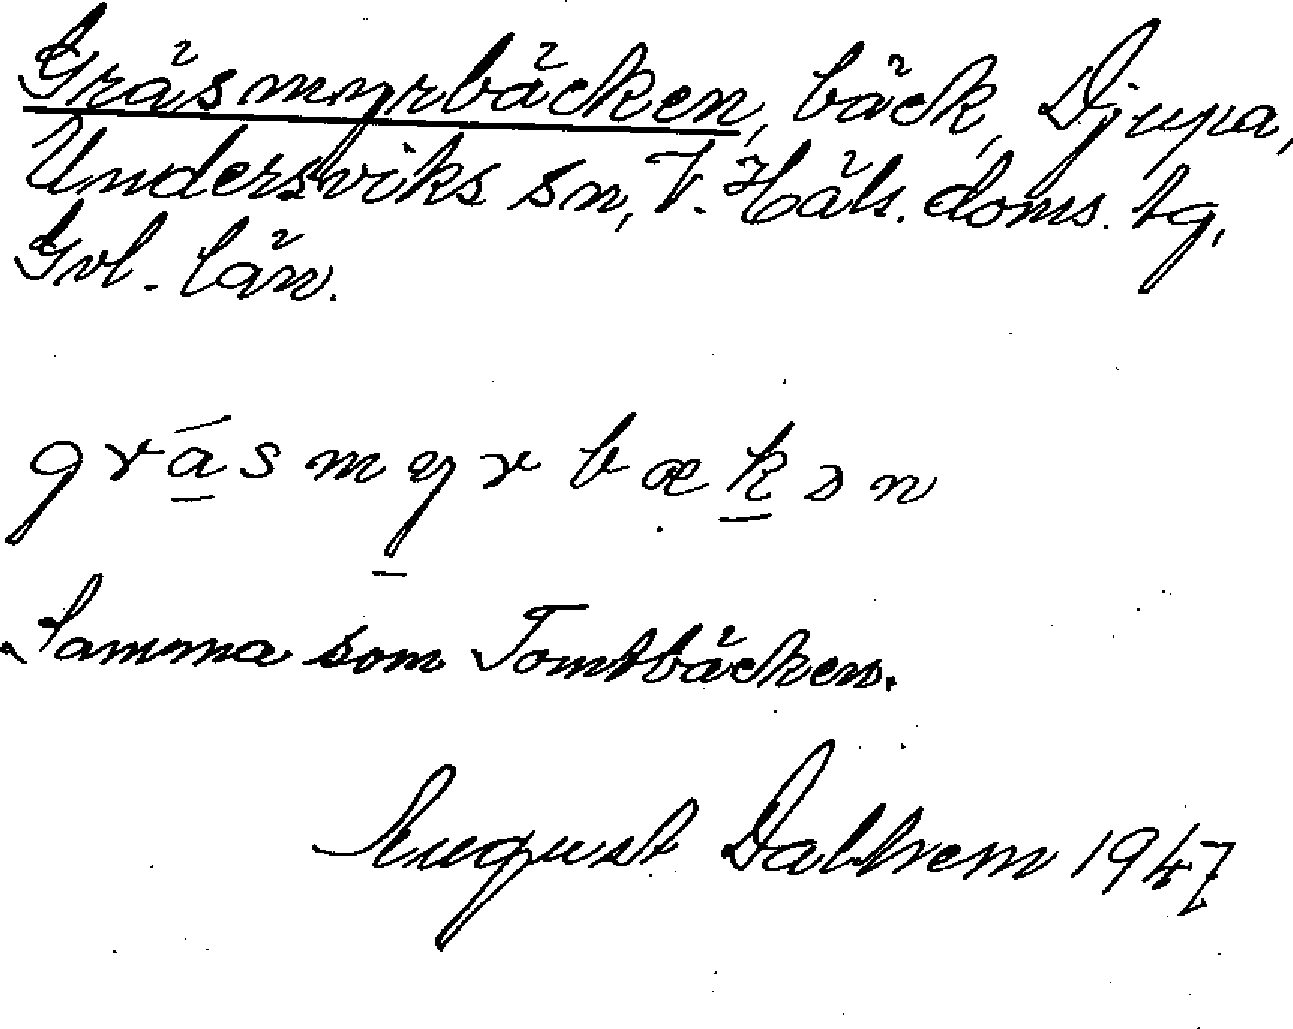 Gräsmyrbäcken, bäck, Djupa,
Undersviks sn, V. Häls. doms. tg,
Gvl. län.
gräsmyrbækən
Samma som Tomtbäcken.
August Dalhem 1947